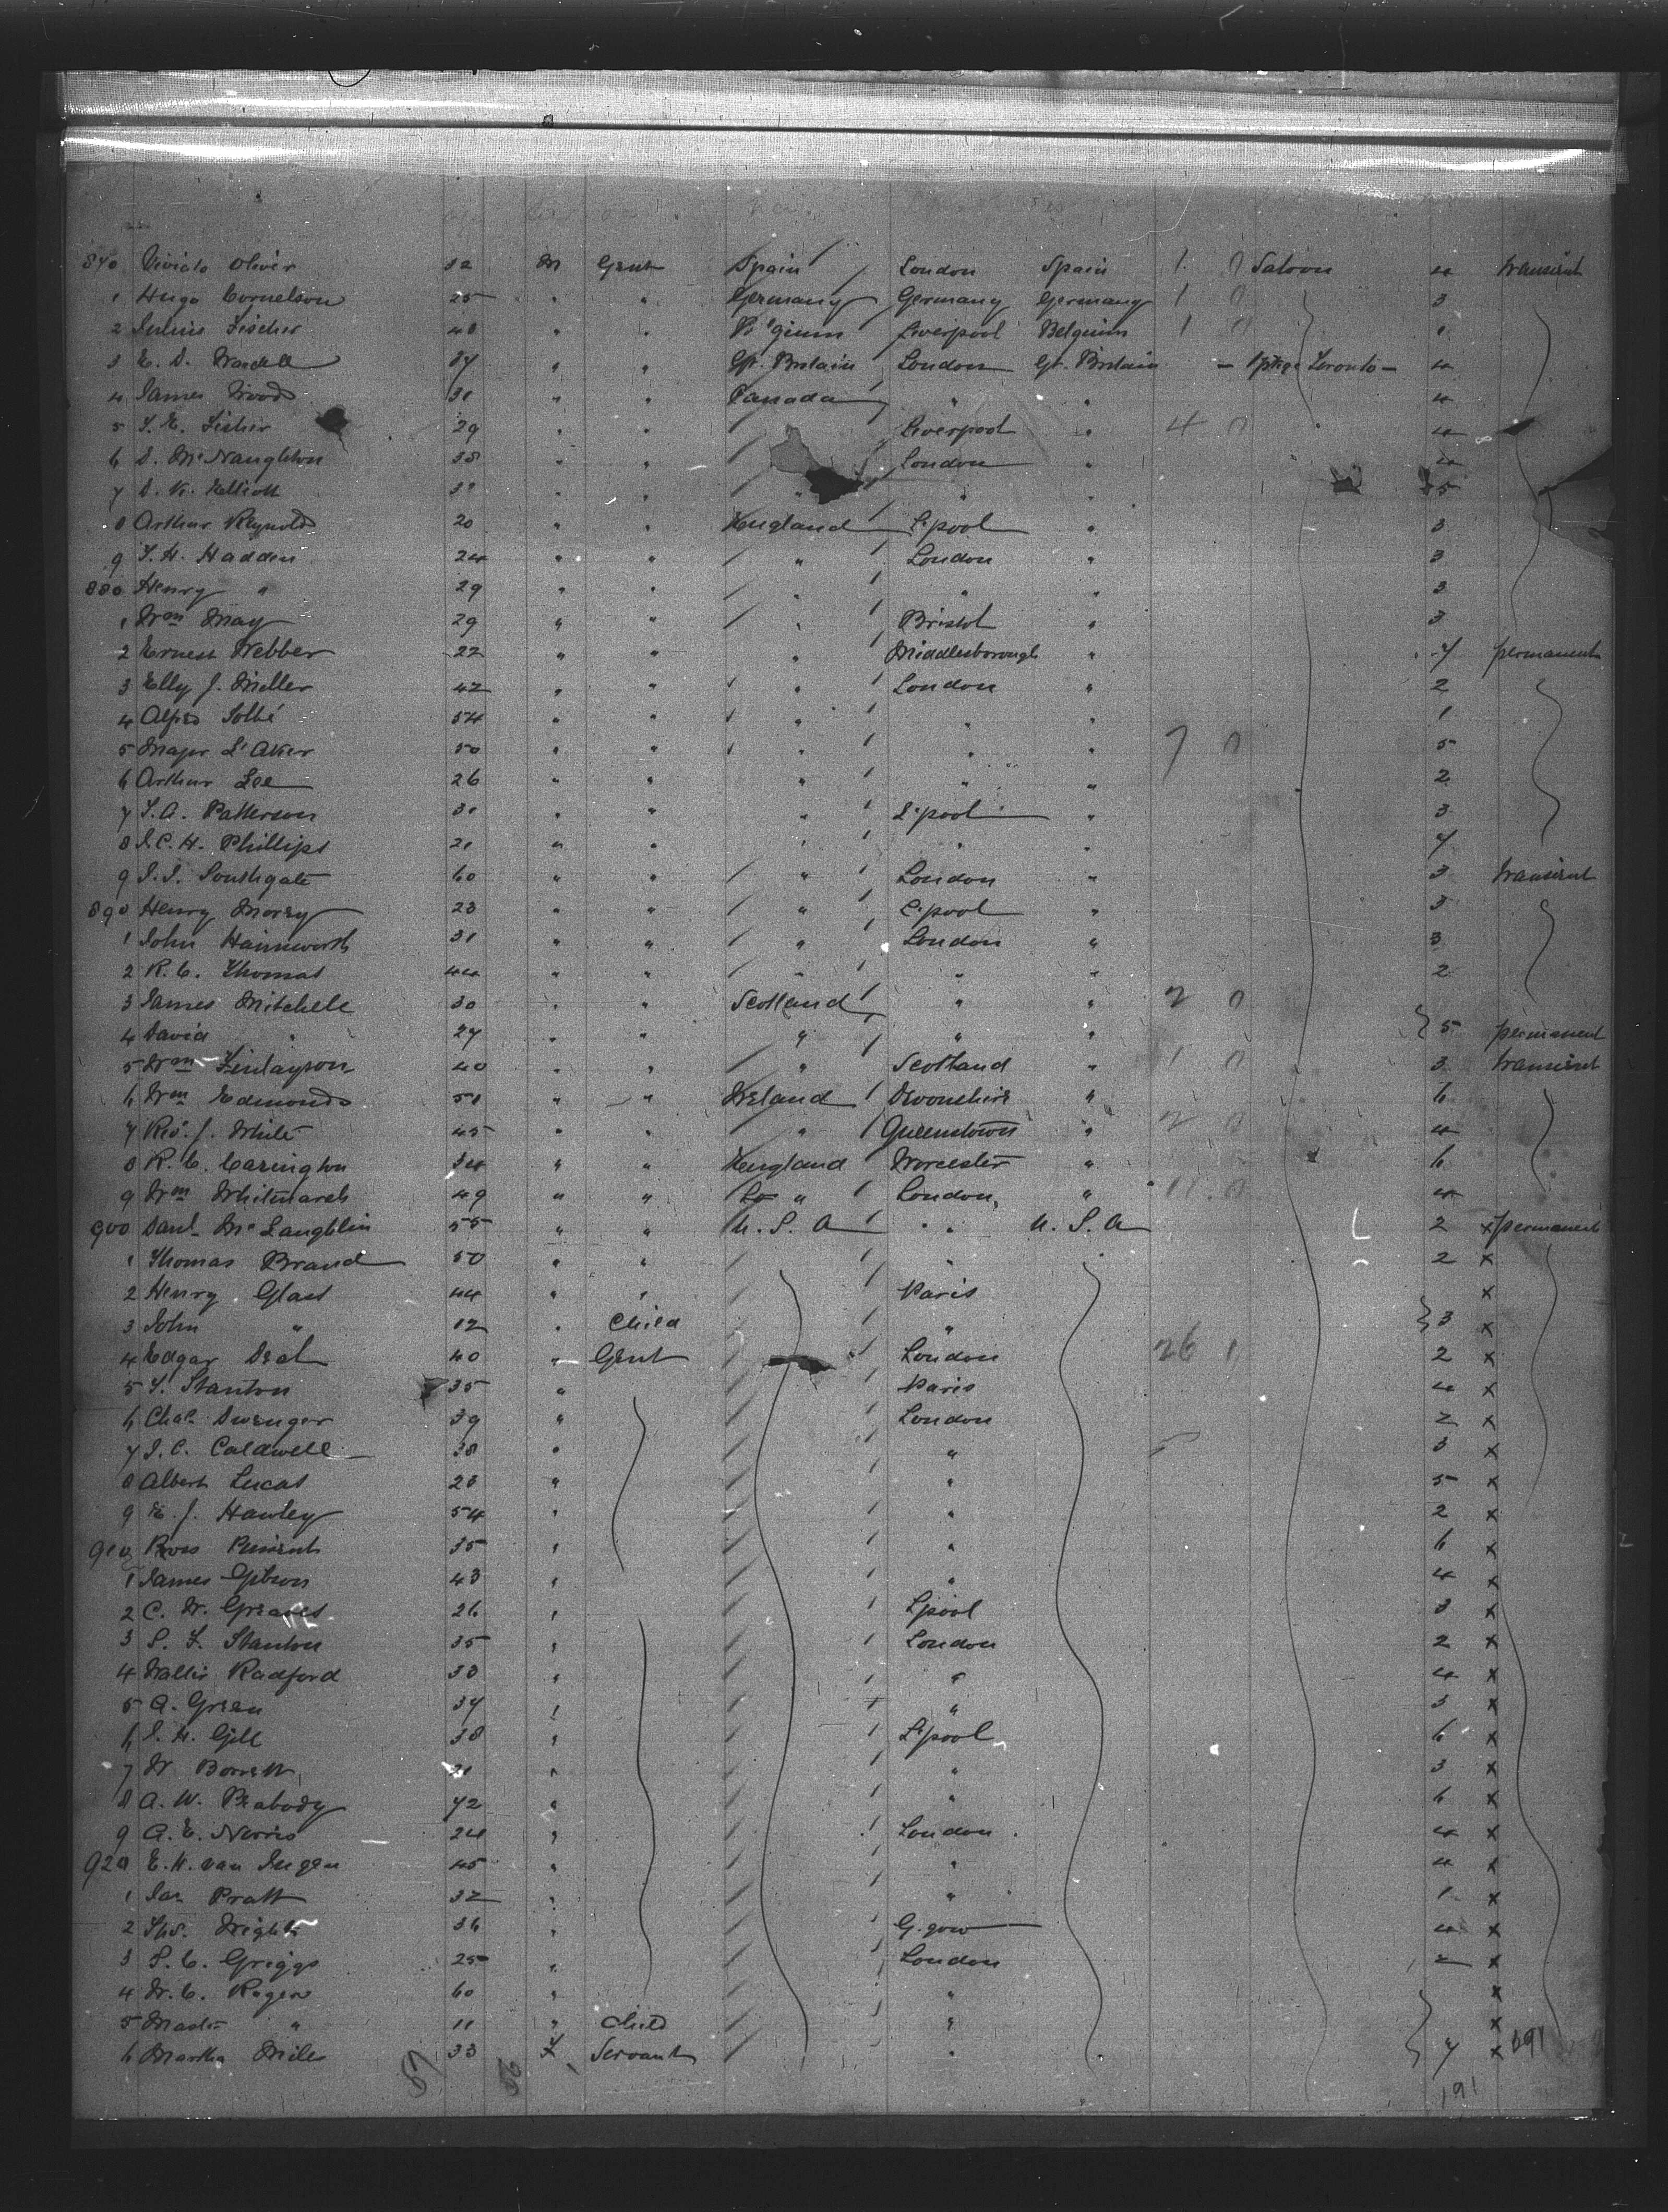 870 Oliver 32 M Gent Spain London Spain 1 0 Saloon 4 transient
1 Hugo Cornelson 25 " " Germany Germany Germany 1 0 3
2 Julius Fischer 48 " " Liverpool Belgium 1 0
3 E. D. 37 " " Gt. Britain London Gt. Britain Toronto - 4
4 James Wood 31 " " Canada " " 4
5 T. E. Fisher 29 " " Liverpool " 4 0 4
6 D. McNaughton 38 " " London " 4
7 D. K. Elliott " " " " " 5
8 Arthur Reynolds 20 " " England L'pool " 3
9 T. H. Hadden 24 " " " London " 3
880 Henry " 29 " " " " " 3
1 Wm May 29 " " " Bristol " 3
2 Ernest Webber 22 " " " Middlesborough " 7 permanent
3 Elly J. Miller 42 " " " London " 2
4 Alfred 54 " " " " " 1
5 Major 50 " " " " " 7 0 5
6 Arthur Lee 26 " " " " " 2
7 T. A. Patterson 31 " " " L'pool " 3
8 J. C. H. Phillips 21 " " " " " 7
9 J. J. Southgate 60 " " " London " 3 transient
890 Henry 23 " " " L'pool " 3
1 John Hainsworth 31 " " " London " 3
2 R. C. Thomas 44 " " " " " 2
3 James Mitchell 30 " " Scotland " " 2 0
4 David " 27 " " " " " 5 permanent
5 Wm Finlayson 40 " " " Scotland " 1 0 3 transient
6 Wm Edmonds 51 " " Ireland Devonshire " 6
7 Rev. J. White 45 " " " Queenstown " 2 0 4
8 R. C. Carington 34 " " England Worcester " 6
9 Wm Whitmarsh 49 " " " London " 11 0 4
900 Danl McLaughlin 55 " " U. S. A " U. S. A 2 x permanent
1 Thomas Brand 50 " " " 2 x
2 Henry Glass 44 " " Paris x
3 John " 12 " Child " 3 x
4 Edgar 40 " Gent London 26 1 2 x
5 T. Stanton 35 " Paris 4 x
6 Chas. Dwenger 39 " London 2 x
7 J. C. Caldwell 38 " " 3 x
8 Albert Lucas 23 " " 5 x
9 E. J. Hawley 54 " " 2 x
910 35 " " 6 x
1 James Gibson 43 " " 4 x
2 C. W. Greaves 26 " L'pool 3 x
3 S. F. Stanton 35 " London 2 x
4 Wallis Radford 33 " " 4 x
5 A. Green 37 " " 3 x
6 J. H. Gill 38 " L'pool 6 x
7 W 21 " " 3 x
8 A. W. Peabody 72 " " 6 x
9 A. E. Norris 24 " London 4 x
920 E. H. van Ingen 45 " " 4 x
1 Jas Pratt 32 " " 1 x
2 Thos. Wright 36 " G.gow 4 x
3 S. C. Griggs 25 " London 2 x
4 W. C. Rogers 60 " " x
5 Master " 11 " Child " x
6 Martha Miles 33 F Servant " 7 x
191